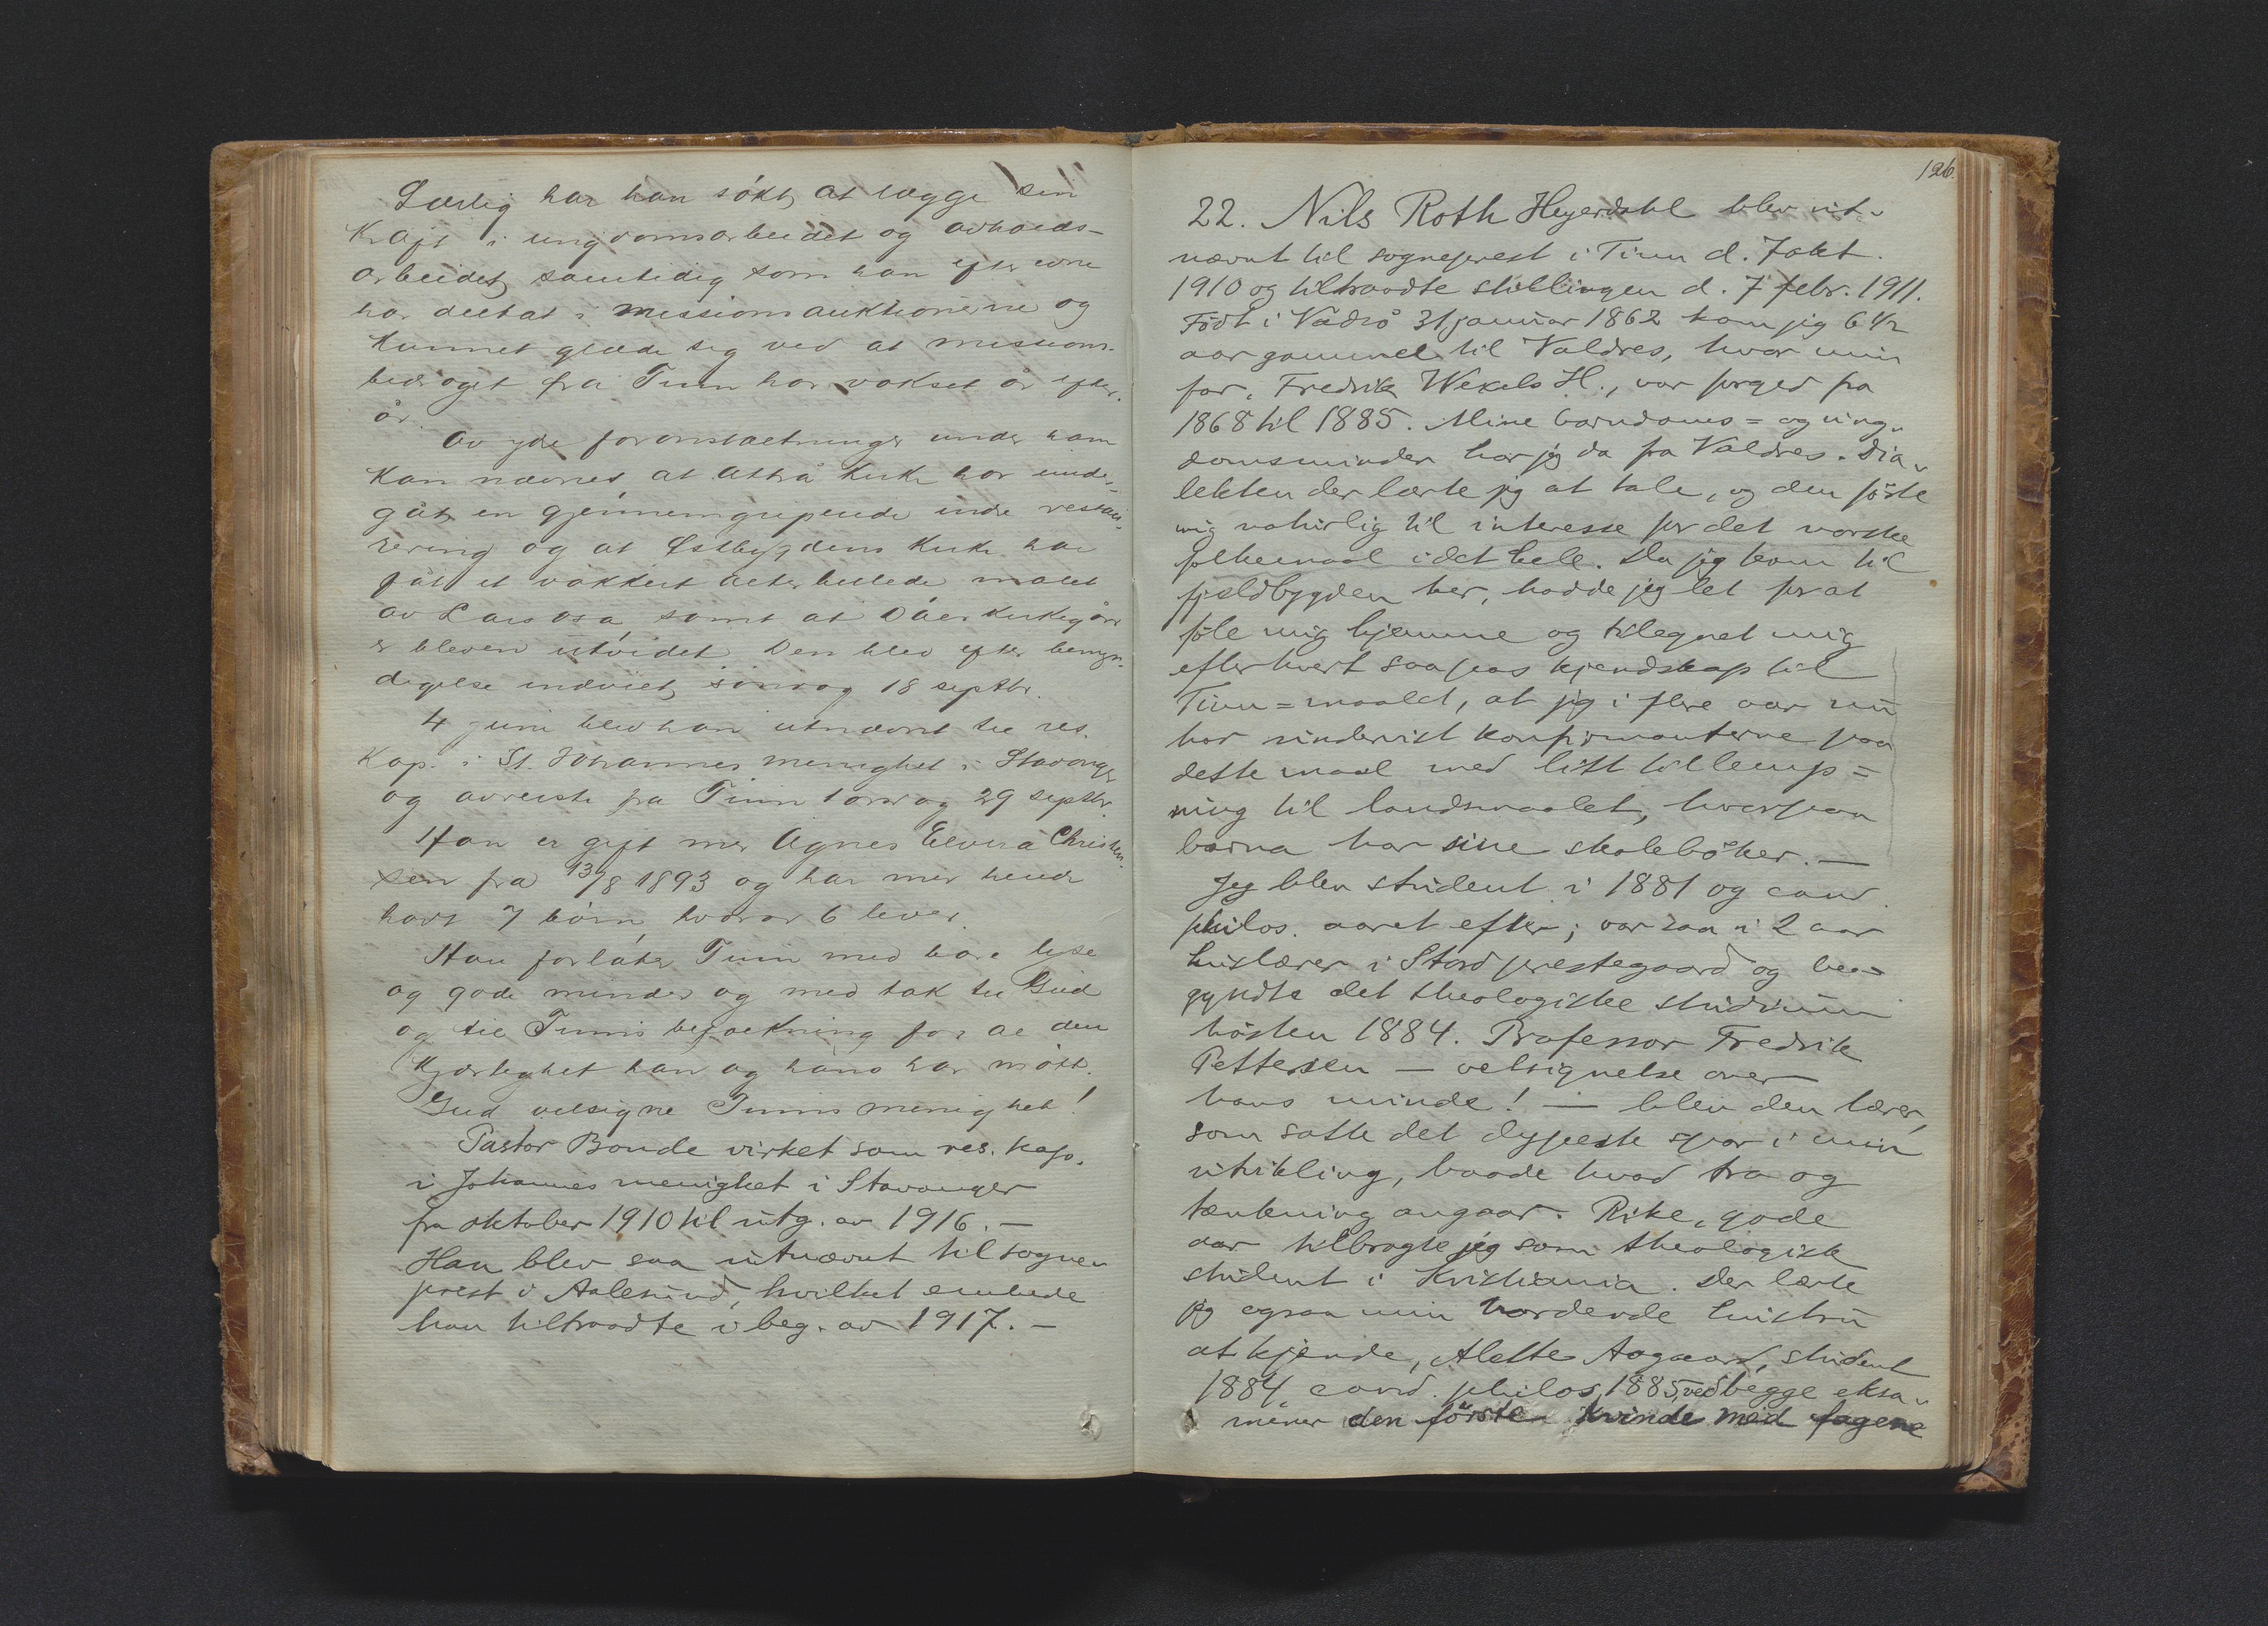 Særlig har han søkt at lægge sin
kraft i ungdomsarbeidet og avholds-
arbeidet, samtidig som han efter evne
har deltat i missionsauktionerne og
kunnet glæde sig ved at missions-
bidraget fra Tinn har vokset år efter
år.
Av ydre foranstaltninger under ham
kan nævnes at Attrå kirke har under-
gåt en gjennemgripende indre restau-
rering og at Østbygdens kirke har
fåt et vakkert alterbillede malet
av Lars Osa samt at Dåes kirkegård
er bleven utvidet. Den blev efter bemyn-
digelse indviet søndag 18 septbr.
4 juni blev han utnævnt til res.
Kap. i St. Johannes menighet i Stavanger
og avreiste fra Tinn torsdag 29 septbr.
Han er gift med Agnes Elvira Christen-
sen fra 13/8 1893 og har med hende
havt 7 børn, hvorav 6 lever.
Han forlater Tinn med bare lyse
og gode minder og med tak til Gud
og til Tinns befolkning for al den
kjærlighet han og hans har møtt.
Gud velsigne Tinns menighet!
Pastor Bonde virket som res. kap.
i Johannes menighet i Stavanger
fra oktober 1910 til utg. av 1916. —
Han blev saa utnævnt til sogne-
prest i Aalesund, hvilket embede
han tiltraadte i beg. av 1917. —
126.
22. Nils Roth Heyerdahl blev ut-
nævnt til sogneprest i Tinn d. 7 okt.
1910 og tiltraadte stillingen d. 7 febr. 1911.
Född i Vadsö 31 januar 1862 kom jeg 6 1/2
aar gammel til Valdres, hvor min
far, Fredrik Wexels H., var foged fra
1868 til 1885. Mine barndoms= og ung-
domsminder har jeg da fra Valdres. Dia-
lekten der lærte jeg at tale, og den förte
mig naturlig til interesse for det norske
folkemaal i det hele. Da jeg kom til
fjeldbygden her, hadde jeg let for at
föle mig hjemme og tilegnet mig
efterhvert saapas kjendskap til
Tinn=maalet, at jeg i flere aar nu
har undervist konfirmanterne paa
dette maal med litt tillemp=
ning til landsmaalet, hvorpaa
barna har sine skoleböker. —
Jeg blev student i 1881 og cand.
philos. aaret efter; var saa i 2 aar
huslærer i Stord prestegaard og be-
gyndte det theologiske studium
hösten 1884. Professor Fredrik
Pettersen — velsignelse over
hans minde! — blev den lærer,
som satte det dypeste spor i min
utvikling, baade hvad tro og
tænkning angaar. Rike, gode
aar tilbragte jeg som theologisk
student i Kristiania. Der lærte
jeg ogsaa min vordende hustru
at kjende, Alette Aagaard, student
1884, cand. philos, 1885, ved begge eksa-
mener den förste kvinde med fagene